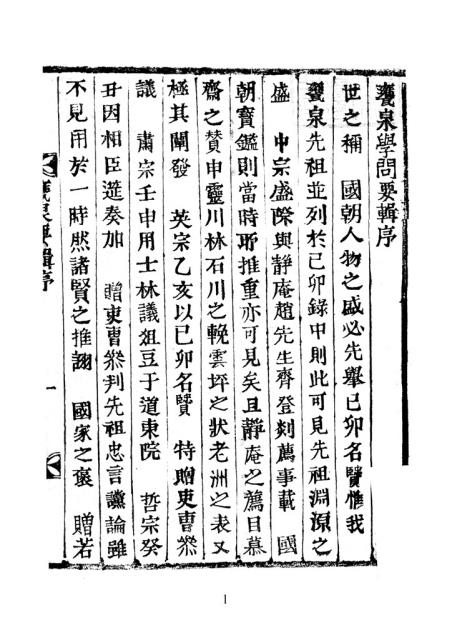 泉學問要輯序
世之稱 國朝人物之盛必先擧己卯名賢惟我
泉先祖並列於己卯錄中則此可見先祖淵源之
盛 中宗盛際與靜庵趙先生齊登剡薦事載 國
朝寶鑑則當時所推重亦可見矣且靜庵之薦目慕
齋之贊申靈川林石川之輓雲坪之狀老洲之表又
極其闡發 英宗乙亥以己卯名賢 特贈吏曹叅
議 肅宗壬申用士林議俎豆于道東院 哲宗癸
丑因相臣筵奏加 贈吏曹叅判先祖忠言讜論雖
不見用於一時然諸賢之推詡 國家之褒 贈若
泉要輯序
一
1